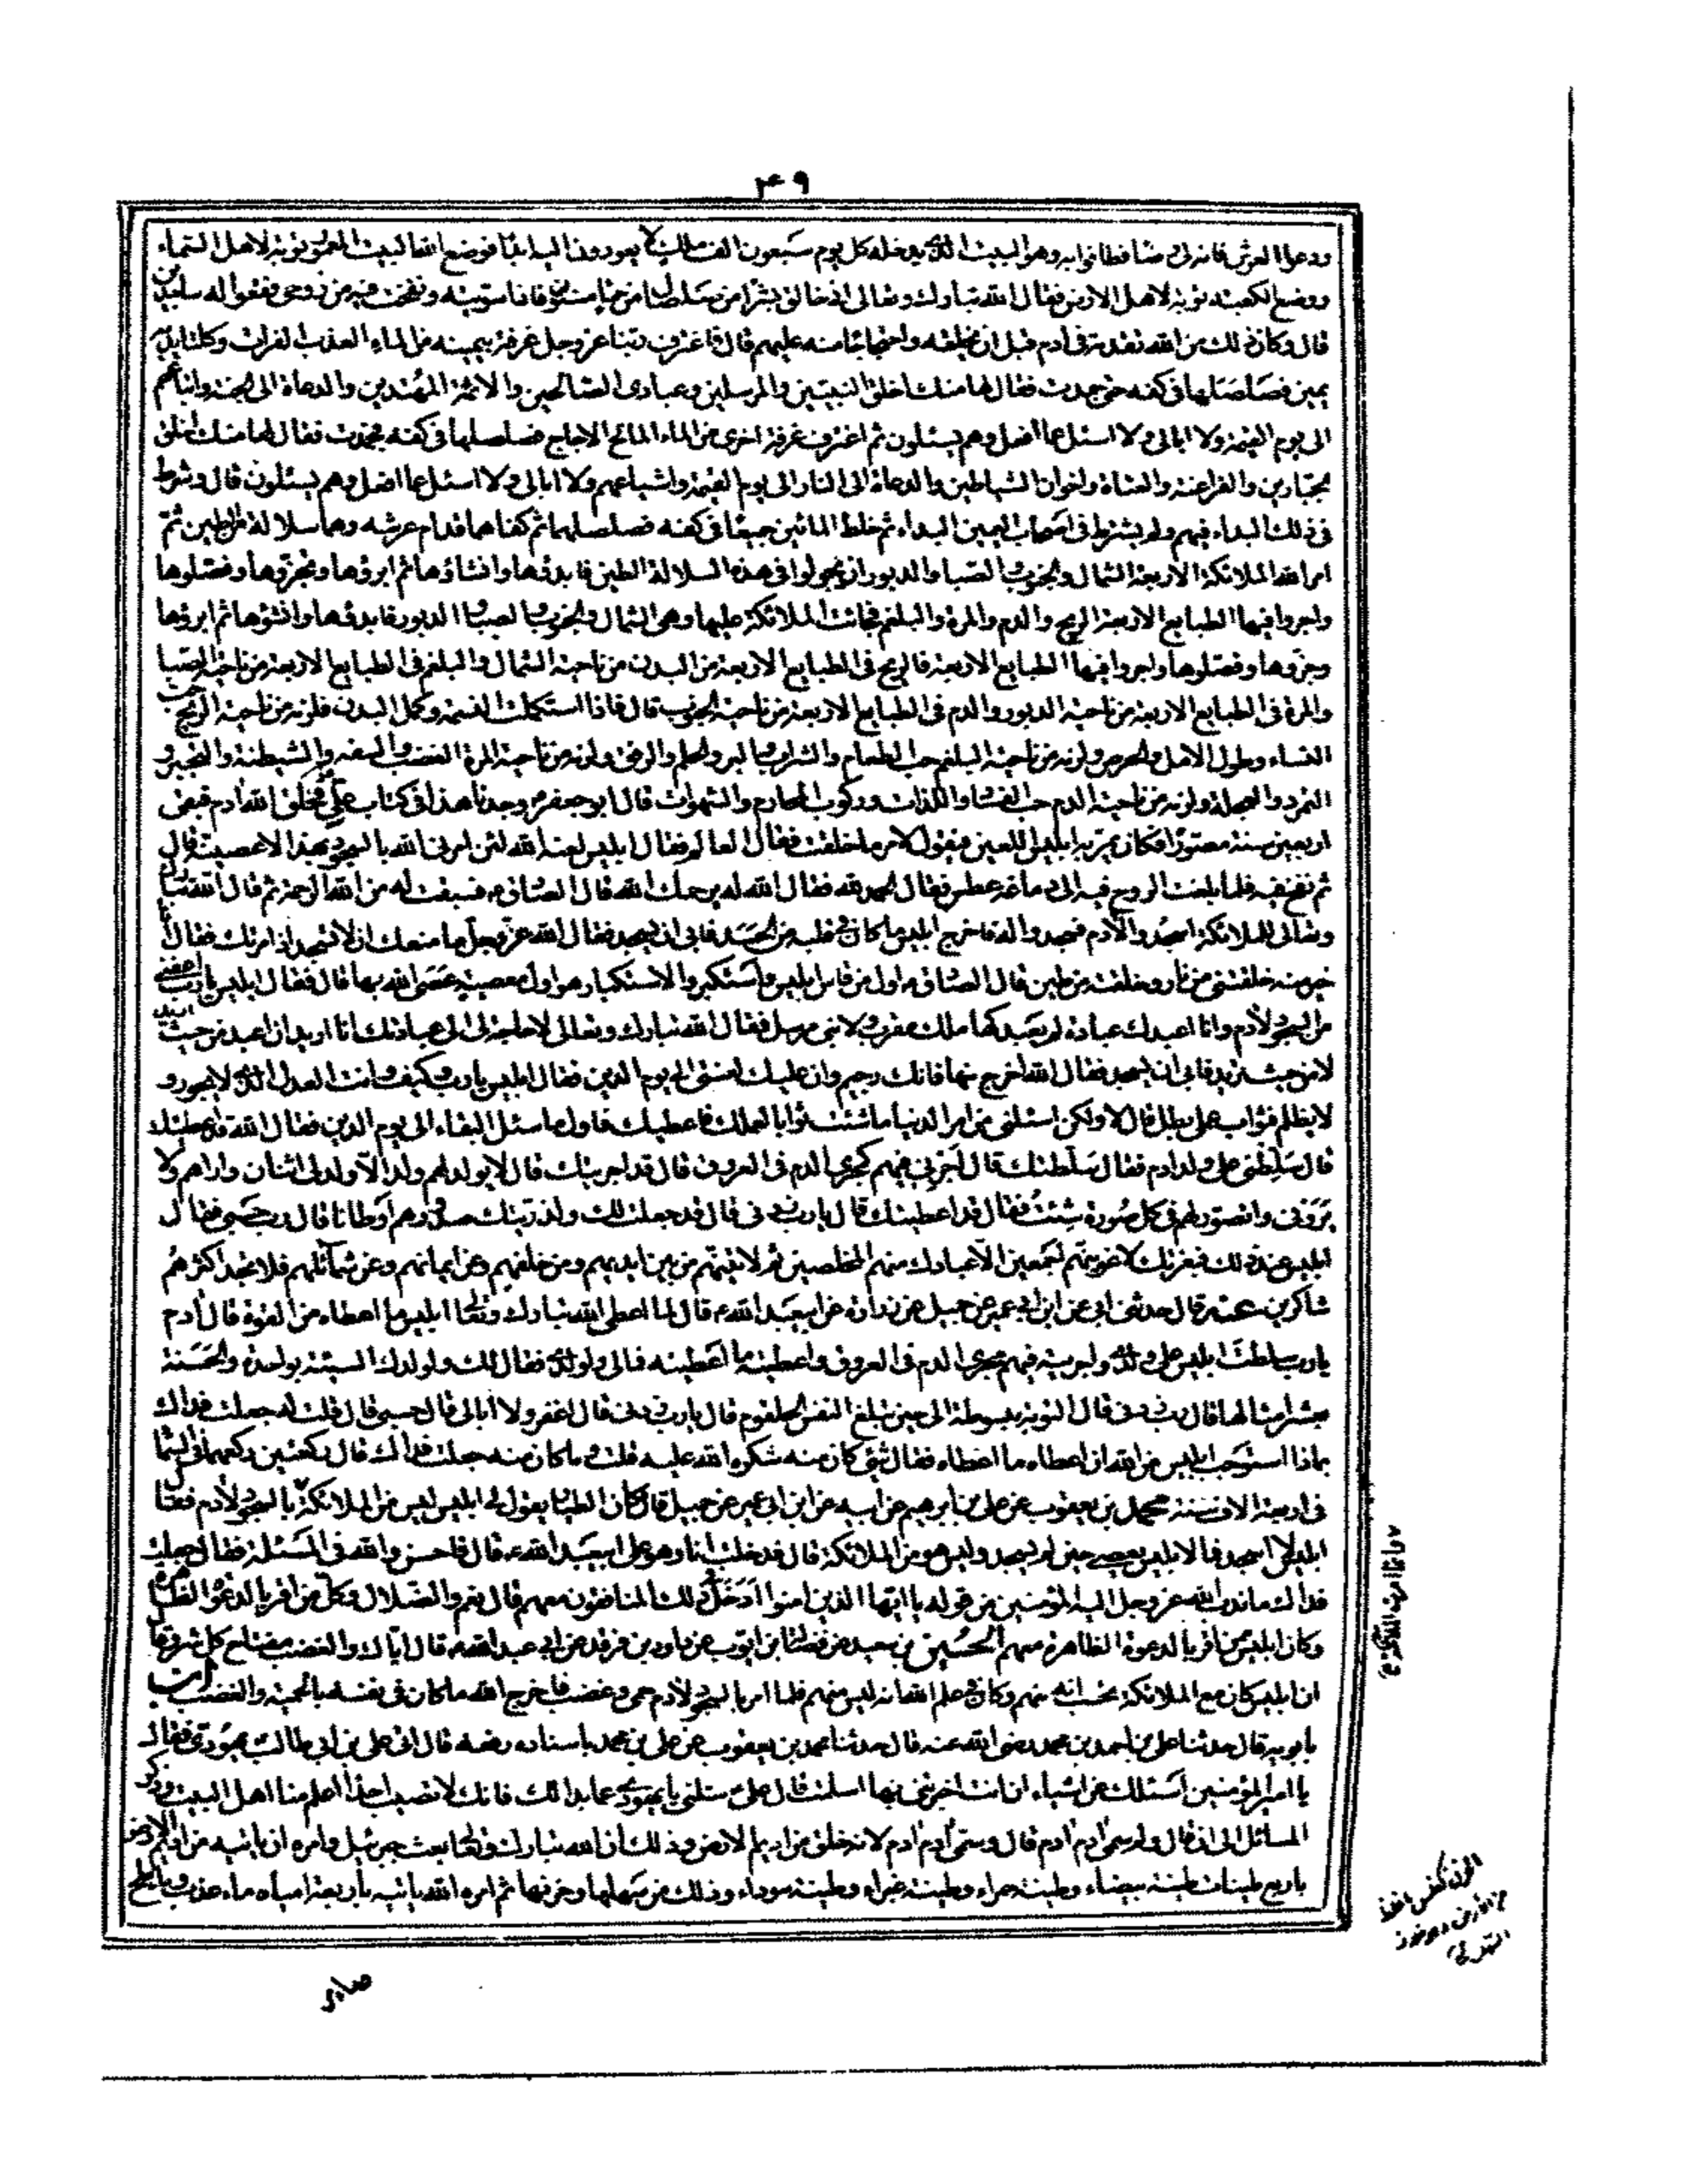 ٤٩
ودعوا العرش فانه لى رضا فطافوا به وهو البيت الذى يدخله كل يوم سبعون الف ملك لا يعودون اليه ابدا فوضع الله البيت المعمور توبة لاهل السماء
ووضع الكعبة توبة لاهل الارض فقال الله تبارك وتعالى انى خالق بشرا من صلصال من حمأ مسنون فاذا سويته ونفخت فيه من روحى فقعوا له ساجدين
قال وكان ذلك من الله تقدمة فى ادم قبل ان يخلقه واحتجاجا منه عليهم قال فاغترف ربنا عز وجل غرفة بيمينه من الماء العذب الفرات وكلتا يديه
يمين فصلصلها فى كفه حتى جمدت فقال لها منك اخلق النبيين والمرسلين وعبادى الصالحين والائمة المهتدين والدعاة الى الجنة واتباعهم
الى يوم القيمة ولا ابالى ولا اسئل عما افعل وهم يسئلون ثم اغترف غرفة اخرى من الماء المالح الاجاج فصلصلها فى كفه فجمدت فقال لها منك اخلق
الجبارين والفراعنة والعتاة واخوان الشياطين والدعاة الى النار الى يوم القيمة واشياعهم ولا ابالى ولا اسئل عما افعل وهم يسئلون قال وشرط
فى ذلك البداء فيهم ولم يشترط فى اصحاب اليمين البداء ثم خلط المائين جميعا فى كفه فصلصلهما ثم كفاهما قدام عرشه وهما سلالة من طين ثم
امر الله الملائكة الاربعة الشمال والجنوب والصبا والدبور ان يجولوا فى هذه السلالة الطين فابدؤها وانشاؤها ثم ابرؤها وتجزؤها وفصلوها
واجروا فيها الطبايع الاربعة الريح والدم والمرة والبلغم فجالت الملائكة عليها وهى الشمال والجنوب والصبا والدبور فابدؤها وانشؤها ثم ابرؤها
وجزؤها وفصلوها واجروا فيها الطبايع الاربعة فالريح فى الطبايع الاربعة من البدن من ناحية الشمال والبلغم فى الطبايع الاربعة من ناحية الصبا
والمرة فى الطبايع الاربعة من ناحية الدبور والدم فى الطبايع الاربعة من ناحية الجنوب قال فاذا استكملت النسمة وكمل البدن فلزمه من ناحية الريح حب
النساء وطول الامل والحرص ولزمه من ناحية البلغم حب الطعام والشراب والبر والحلم والرفق ولزمه من ناحية المرة الغضب والسفه والشيطنة والتجبر و
التمرد والعجلة ولزمه من ناحية الدم حب النساء واللذات وركوب المحارم والشهوات قال ابو جعفر ع وجدنا هذا فى كتاب على ع فخلق الله ادم فبقى
اربعين سنة مصورا فكان يمر به ابليس اللعين فيقول لامر ما خلقت فقال العالم فقال ابليس لعنه الله لئن امرنى الله بالسجود لهذا لاعصيته قال
ثم نفخ فيه فلما بلغت الروح فيه الى دماغه عطس فقال الحمد لله فقال الله له يرحمك الله قال الصادق ع فسبقت له من الله الرحمة ثم قال الله تبارك
وتعالى للملائكة اسجدوا لادم فسجدوا له فاخرج ابليس ما كان فى قلبه من الحسد فابى ان يسجد فقال الله عز وجل ما منعك ان لا تسجد اذ امرتك فقال انا
خير منه خلقتنى من نار وخلقته من طين قال الصادق ع اول من قاس ابليس واستكبر والاستكبار هو اول معصية عصى الله بها قال فقال ابليس يا رب اعفنى
من السجود لادم وانا اعبدك عبادة لم يعبدكها ملك مقرب ولا نبى مرسل فقال الله تبارك وتعالى لا حاجة لى الى عبادتك انا اريد ان اعبد من حيث اريد
لا من حيث تريد فابى ان يسجد فقال الله اخرج منها فانك رجيم وان عليك لعنتى الى يوم الدين فقال ابليس يا رب وكيف وانت العدل الذى لا يجور و
لا يظلم فثواب عملى بطل قال لا ولكن اسئلنى من امر الدنيا ما شئت ثوابا لعملك فاعطيك فاول ما سئل البقاء الى يوم الدين فقال الله قد اعطيتك
قال سلطنى على ولد ادم فقال سلطتك قال اجرنى فيهم كمجرى الدم فى العروق قال قد اجريتك قال لا يولد لهم ولد الا ولد لى اثنان واراهم ولا
يرونى واتصور لهم فى كل صورة شئت فقال قد اعطيتك قال يا رب زدنى قال قد جعلت لك ولذريتك صدورهم اوطانا قال رب حسبى فقال
ابليس عند ذلك فبعزتك لاغوينهم اجمعين الا عبادك منهم المخلصين ثم لاتينهم من بين ايديهم ومن خلفهم وعن ايمانهم وعن شمائلهم فلا تجد اكثرهم
شاكرين عنه قال حدثنى ابى عن ابن ابى عمير عن جميل عن زرارة عن ابى عبد الله ع قال لما اعطى الله تبارك وتعالى ابليس ما اعطاه من القوة قال ادم
يا رب سلطت ابليس على ولدى واجريته فيهم مجرى الدم فى العروق واعطيته ما اعطيته فما لى ولولدى فقال لك ولولدك السيئة بواحدة والحسنة
بعشر امثالها قال رب زدنى قال التوبة مبسوطة الى حين تبلغ النفس الحلقوم قال يا رب زدنى قال اغفر ولا ابالى قال حسبى قال قلت له جعلت فداك
بماذا استوجب ابليس من الله ان اعطاه ما اعطاه فقال بشئ كان منه شكره الله عليه قلت وما كان منه جعلت فداك قال ركعتين ركعهما فى السماء
فى اربعة الاف سنة محمد بن يعقوب عن على بن ابرهيم عن ابيه عن ابن ابى عمير عن جميل قال كان الطيار يقول لى ابليس ليس من الملائكة بالسجود لادم فقال
ابليس لا اسجد فما لابليس يعصى حين لم يسجد وليس هو من الملائكة قال فدخلت انا وهو على ابى عبد الله ع قال فاحسن والله فى المسئلة فقال جعلت
فداك ما ندب الله عز وجل اليه المؤمنين من قوله يا ايها الذين امنوا ادخل فى ذلك المنافقون معهم قال نعم والضلال وكل من اقر بالدعوة الظاهرة
وكان ابليس ممن اقر بالدعوة الظاهرة معهم الحسين بن سعيد عن فضالة ابن ايوب عن داود بن فرقد عن ابى عبد الله ع قال اياك والغضب مفتاح كل شر وقال
ان ابليس كان مع الملائكة يحسب انه منهم وكان فى علم الله انه ليس منهم فلما امر بالسجود لادم حمى وغضب فاخرج الله ما كان فى نفسه بالحمية والغضب ابن
بابويه قال حدثنا على بن احمد بن محمد رضى الله عنه قال حدثنا محمد بن يعقوب عن على بن محمد باسناده رفعه قال اتى على بن ابى طالب يهودى فقال
يا امير المؤمنين اسئلك عن اشياء ان انت اخبرتنى بها اسلمت قال على ع سلنى يا يهودى عما بدا لك فانك لا تصيب احدا اعلم منا اهل البيت وذكر
المسائل الى ان قال ولم سمى ادم ادم قال وسمى ادم ادم لانه خلق من اديم الارض وذلك ان الله تبارك وتعالى بعث جبرئيل وامره ان ياتيه من اديم الارض
باربع طينات طينة بيضاء وطينة حمراء وطينة غبراء وطينة سوداء وذلك من سهلها وحزنها ثم امره الله ياتيه باربعة امياه ماء عذب وماء ملح